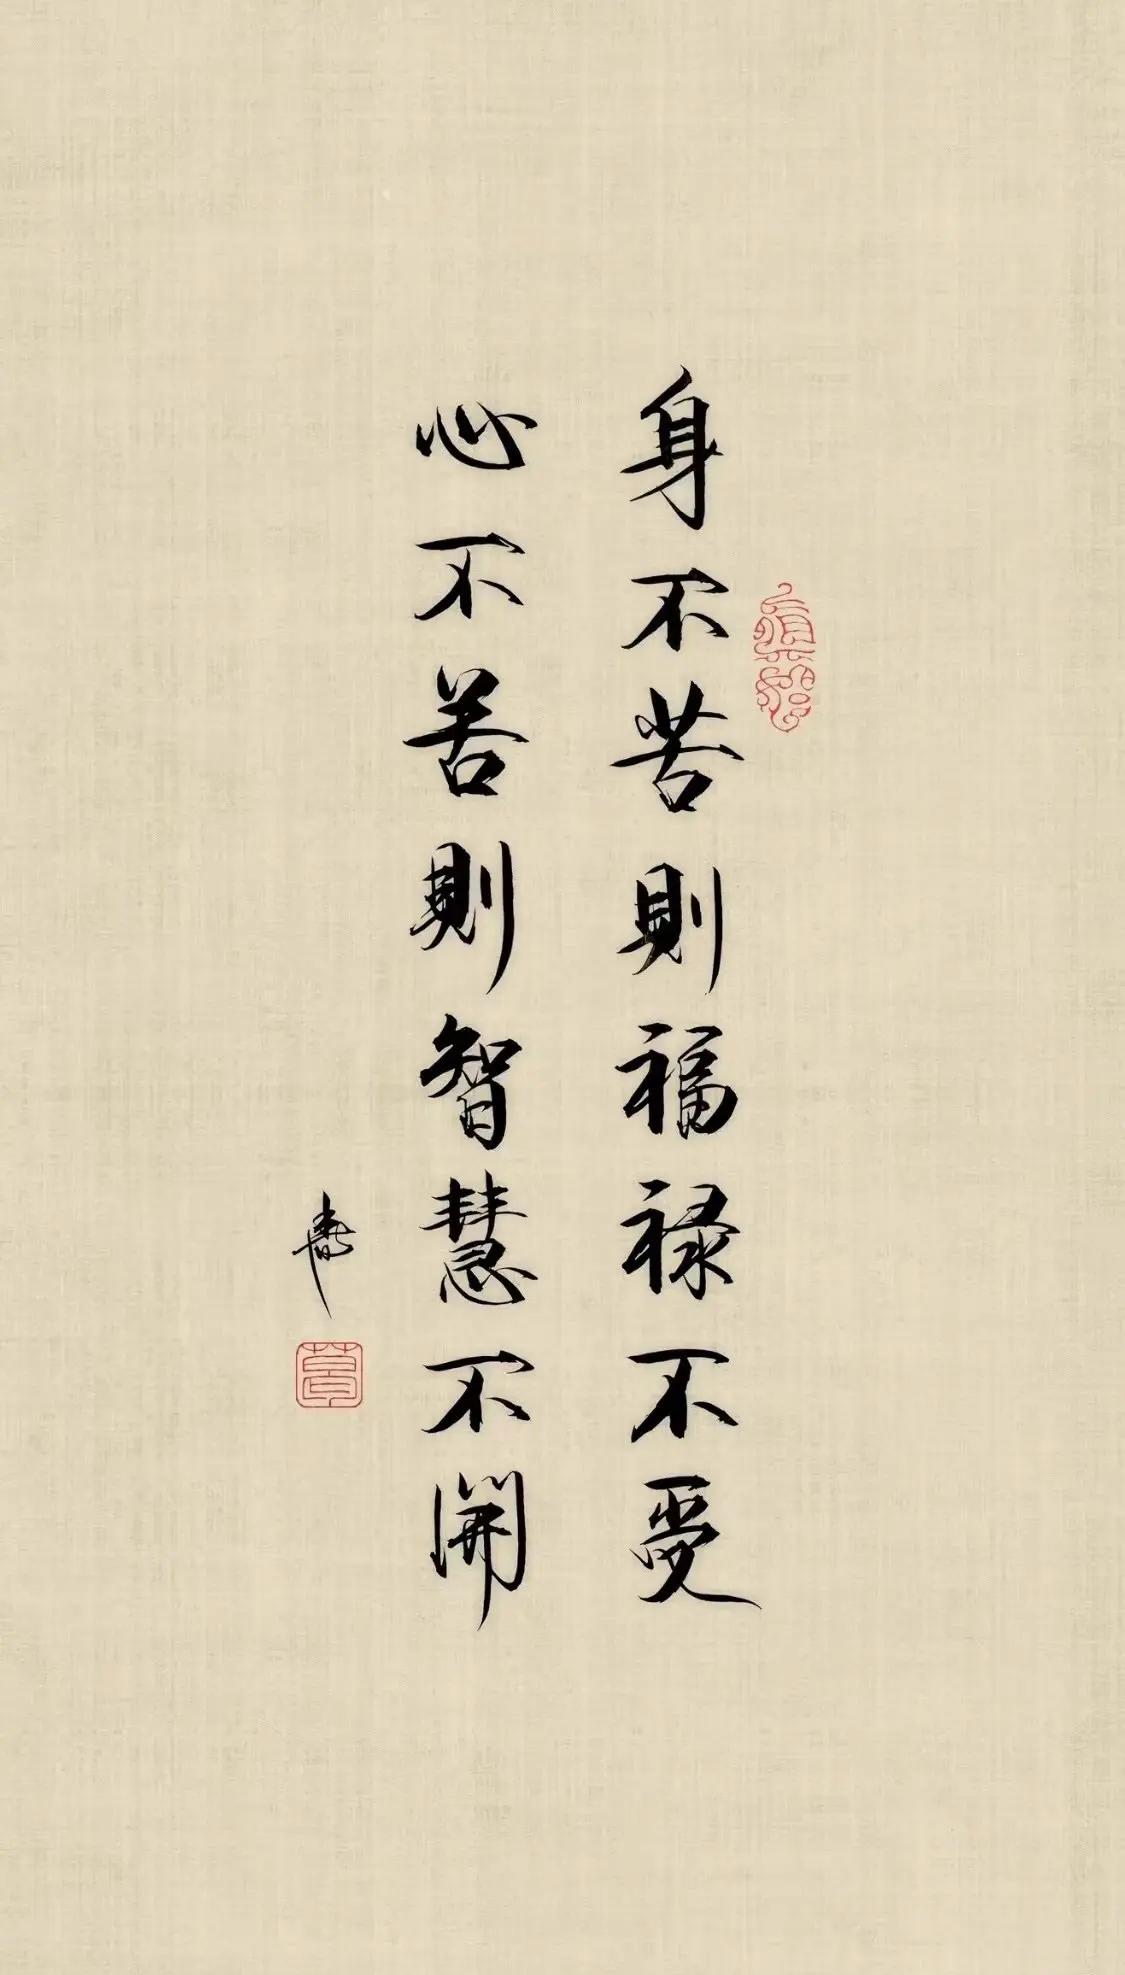 身不苦則福禄不受
心不苦則智慧不開